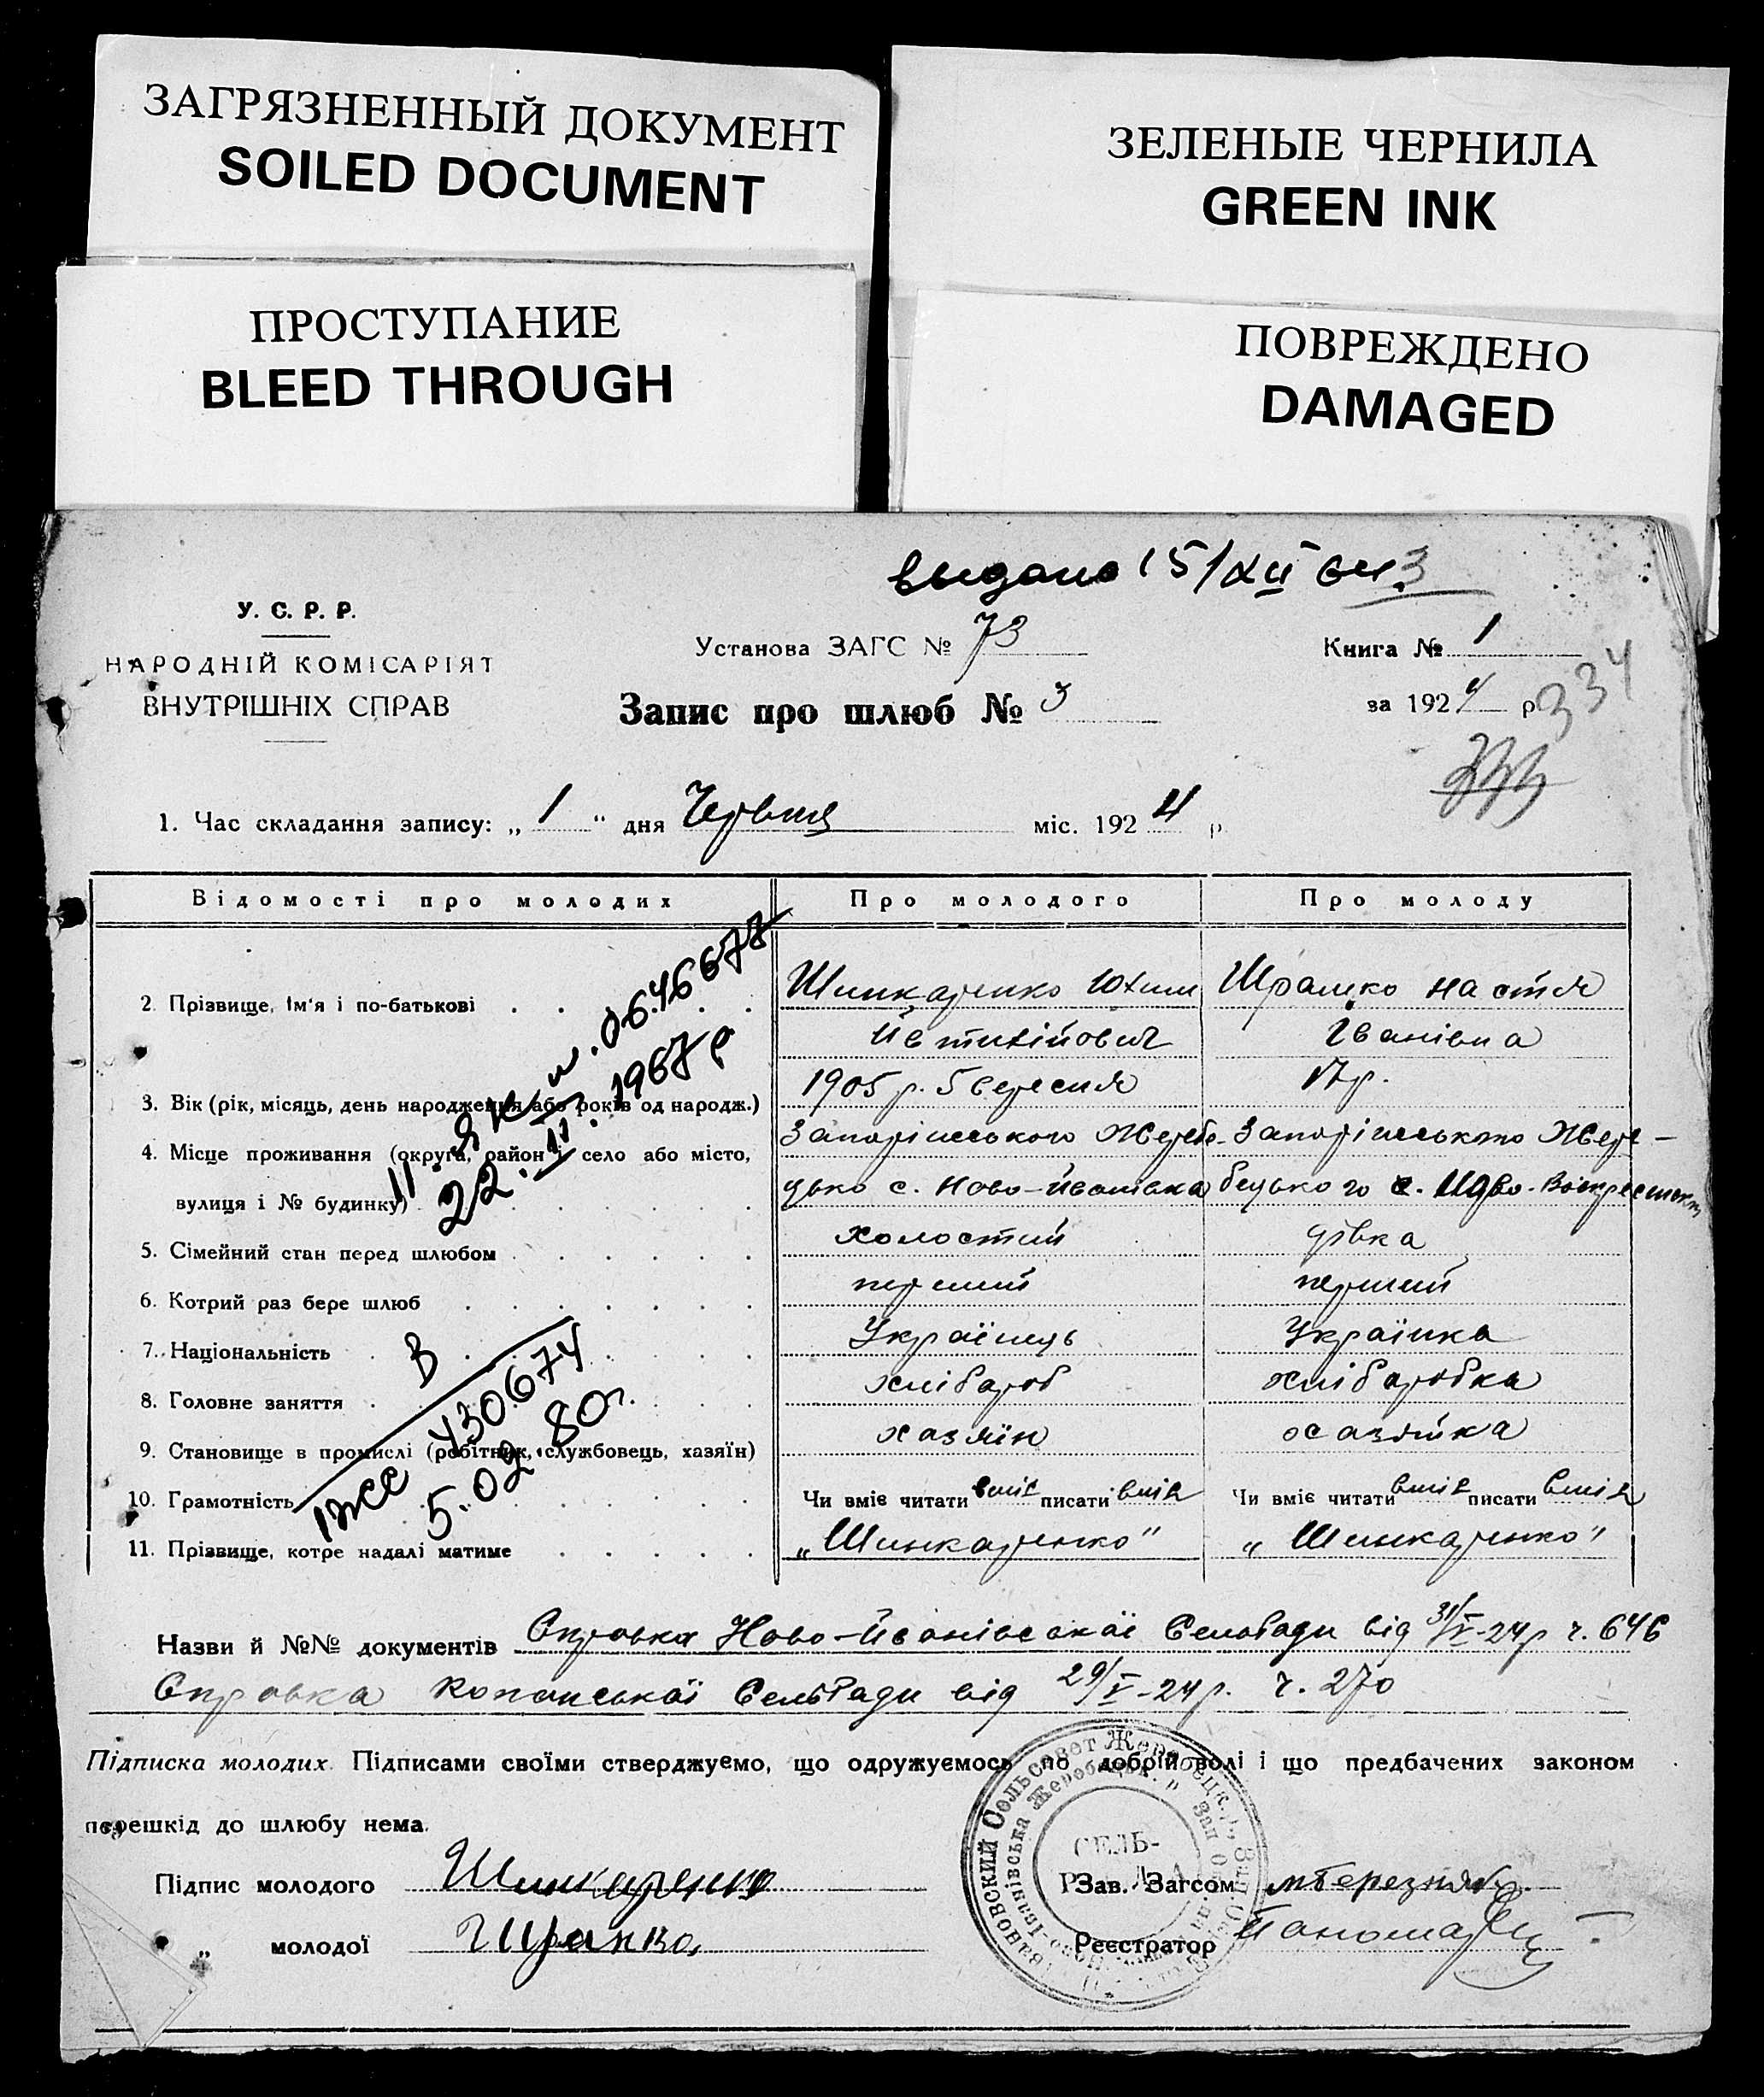 ЗАГРЯЗНЕННЫЙ ДОКУМЕНТ
SOILED DOCUMENT
ЗЕЛЕНЫЕ ЧЕРНИЛА
GREEN INK
ПРОСТУПАНИЕ
BLEED THROUGH
ПОВРЕЖДЕНО
DAMAGED
выдано 15/XII 3
У. С. Р. Р.
НАРОДНІЙ КОМІСАРІЯТ
ВНУТРІШНІХ СПРАВ
Установа ЗАГС № 73
Запис про шлюб № 3
Книга № 1
за 1924 р
334
333
1. Час складання запису: „ 1 " дня Червня міс. 1924 р.
Відомості про молодих Про молодого Про молоду
2. Прізвище, Ім'я і по-батькові Шинкаренко Юхим Шрамко Настя
Йвтихійович Іванівна
3. Вік (рік, місяць, день народження або років од народж.) 1905 р. 5 вересня 17 р.
4. Місце проживання (округа, район і село або місто, Запорішського Жеребе- Запорішського Жере-
вулиця і № будинку) цько с. Ново-Йванівка бецького с. Ново-
5. Сімейний стан перед шлюбом холостий дівка
6. Котрий раз бере шлюб перший перший
7. Національність Українець Українка
8. Головне заняття хлібароб хлібаробка
9. Становище в промислі (робітник, службовець, хазяїн) хазяїн хазяйка
10. Грамотність Чи вміє читати вміє писати вміє Чи вміє читати вміє писати вміє
11. Прізвище, котре надалі матиме „Шинкаренко" „Шинкаренко"
II ЯК № 0646677
22.11.1967 р
В
430674
5.02 80 г.
Назви й №№ документів Справка Ново-Йванівскаї СельРади від 31/V-24 р ч. 646
Справка Копанськаї СельРади від 29/V-24 р. ч. 270
Підписка молодих. Підписами своїми стверджуємо, що одружуємось по добрій волі і що предбачених законом
перешкід до шлюбу нема.
Підпис молодого Шинкаренко
„ молодої Шрамко
СЕЛЬ-
Зав. Загсом мБерезняк
Реєстратор